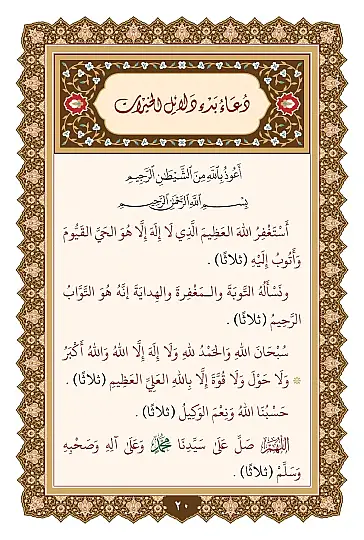 دُعَاءُ بَدْءِ دَلَائِلِ الْخَيْرَاتِ
أَعُوذُ بِاللَّهِ مِنَ الشَّيْطَانِ الرَّجِيمِ
بِسْمِ اللَّهِ الرَّحْمَنِ الرَّحِيمِ
أَسْتَغْفِرُ اللهَ العَظِيمَ الَّذِي لَا إِلَهَ إِلَّا هُوَ الحَيَّ القَيُّومَ
وَأَتُوبُ إِلَيْهِ (ثلاثًا) .
ونَسْأَلُهُ التَّوْبَةَ والـمَغْفِرةَ والهِدايَةَ إنَّهُ هُوَ التَّوَّابُ
الرَّحِيمُ (ثلاثًا) .
سُبْحَانَ اللهِ وَالحَمْدُ للهِ وَلَا إِلَهَ إِلَّا اللهُ وَاللهُ أَكْبَرُ
وَلَا حَوْلَ وَلَا قُوَّةَ إِلَّا بِاللهِ العَلِيِّ العَظِيمِ (ثلاثًا) .
حَسْبُنَا اللهُ وَنِعْمَ الوَكِيلُ (ثلاثًا) .
اللَّهُمَّ صَلِّ عَلَى سَيِّدِنَا مُحَمَّدٍ وَعَلَى آلِهِ وَصَحْبِهِ
وَسَلِّمْ (ثلاثًا) .
٢٠